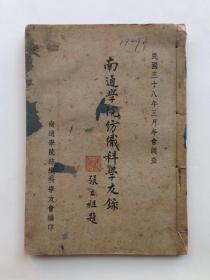 民國三十八年三月年會調查
南通學院紡織科學友錄
張 祖題
南通學院紡織科學友會編印